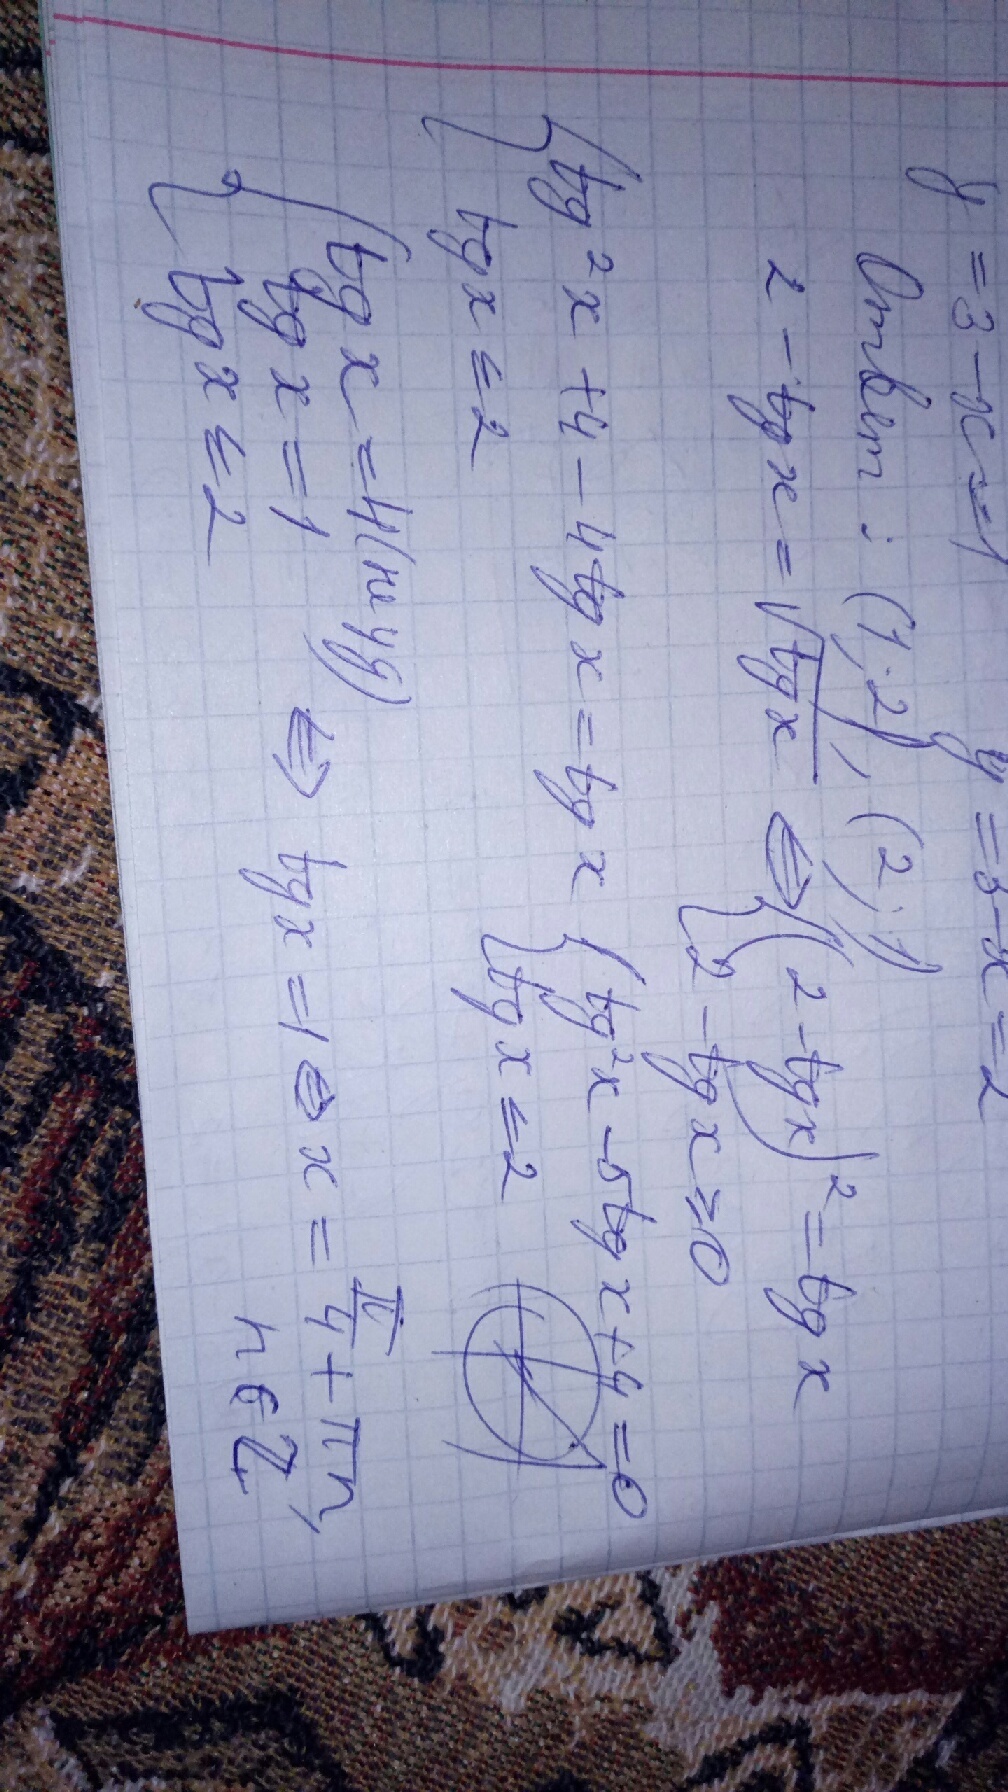 y = 3 - x = 1 y = 3 - x = 2
Ответ: (1; 2), (2; 1)
2 - tg x = √tg x ⇔ { (2 - tg x)² = tg x
2 - tg x ≥ 0
{ tg² x + 4 - 4 tg x = tg x { tg² x - 5 tg x + 4 = 0
tg x ≤ 2 tg x ≤ 2
{ tg x = 4 (не уд)
tg x = 1 ⇔ tg x = 1 ⇔ x = π/4 + πn,
tg x ≤ 2 n ∈ Z